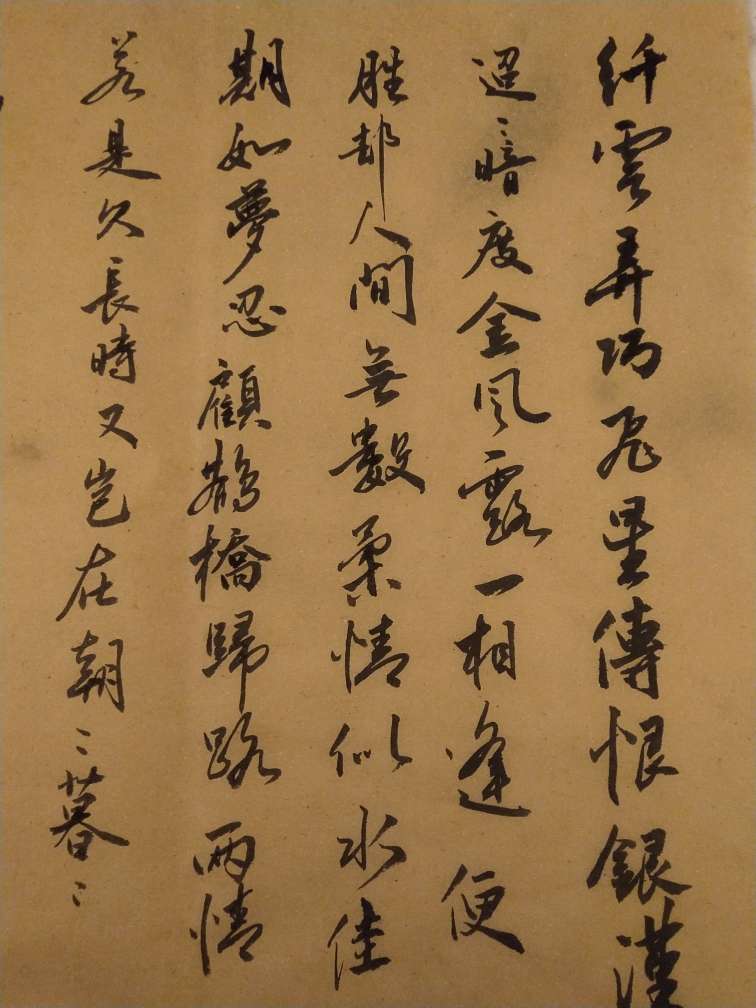 纤雲弄巧飛星傳恨銀漢
迢〻暗度金風露一相逢便
胜却人間無數柔情似水佳
期如夢忍顧鹊橋歸路兩情
若是久長時又岂在朝〻暮〻